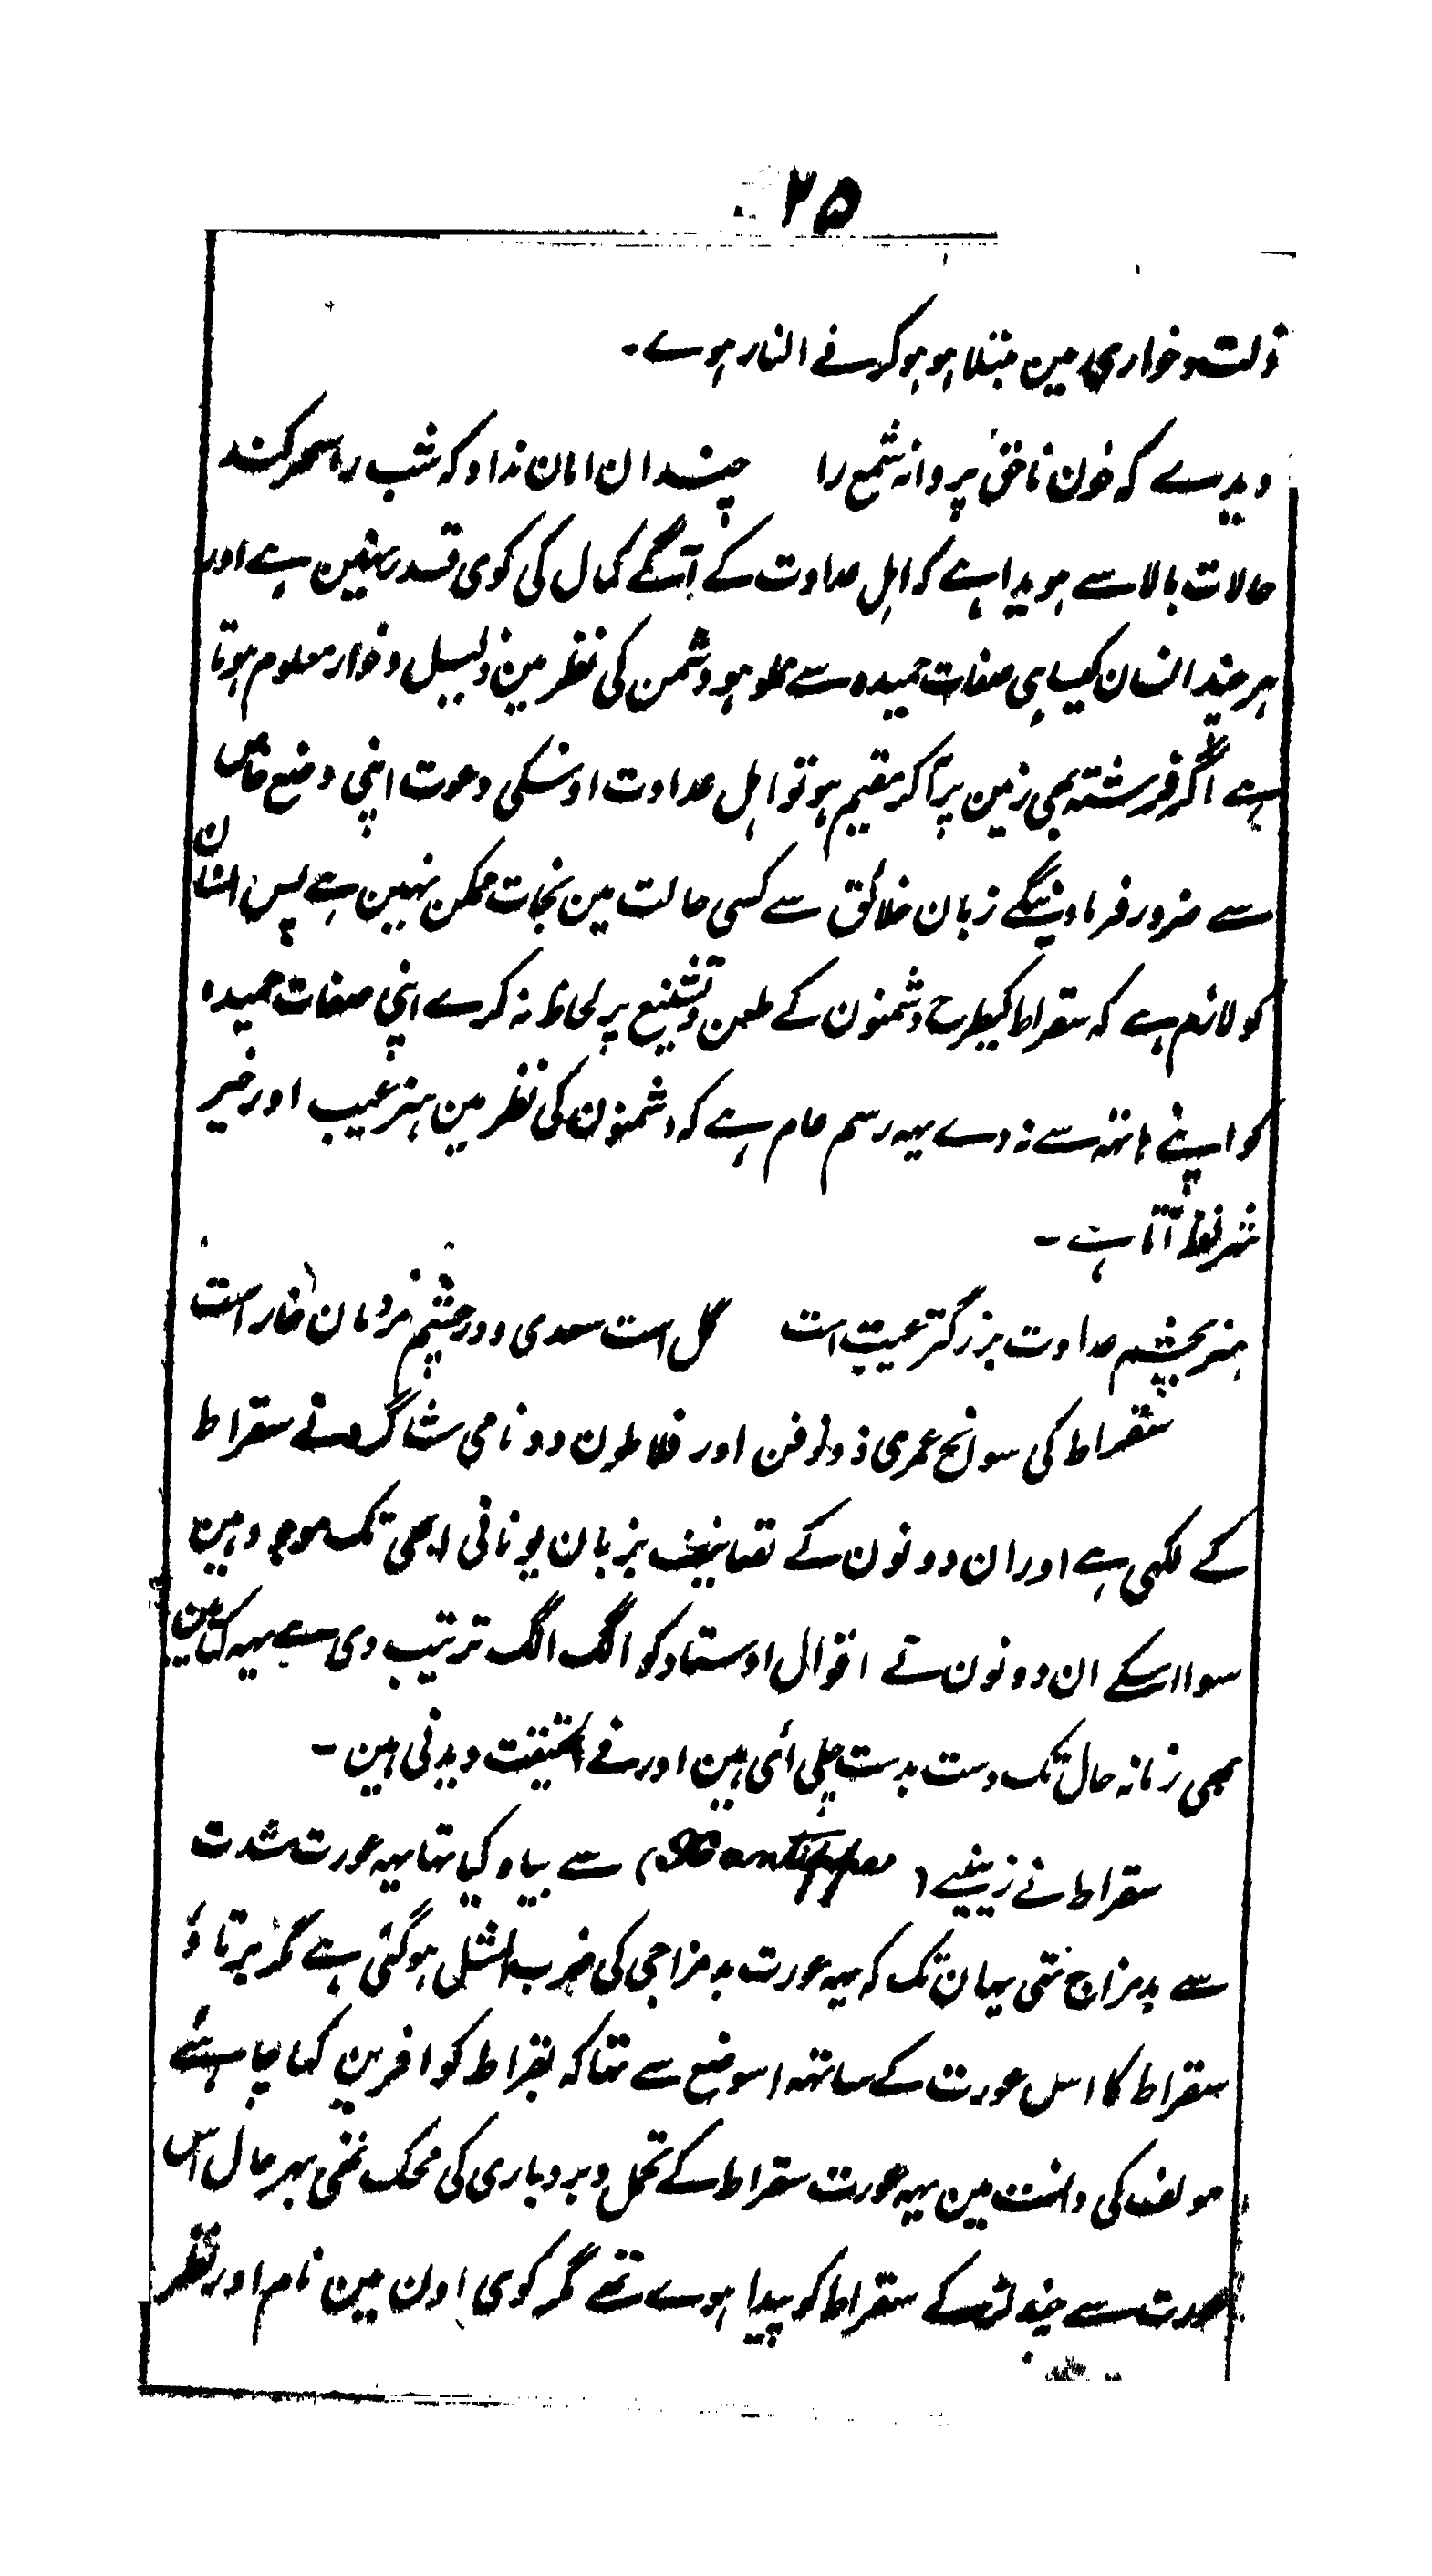 ۲۵
ذلت و خواری مین مبتلا ہو ہو کر فے النار ہوے۔
دیدے کہ خون ناحق پروانہ شمع را چندان امان نداد کہ شب را سحر کند
حالات بالا سے ہویدا ہے کہ اہل عداوت کے آگے کمال کی کوی قدر نہین ہے اور
ہر چند انسان کیسا ہی صفات حمیدہ سے مملو ہو دشمن کی نظر مین ذلیل و خوار معلوم ہوتا
ہے اگر فرشتہ بھی زمین پر آ کر مقیم ہو تو اہل عداوت اوسکی دعوت اپنی وضع خاص
سے ضرور فرماوینگے زبان خلائق سے کسی حالت مین نجات ممکن نہین ہے پس انسان
کو لازم ہے کہ سقراط کیطرح دشمنون کے طعن و تشنیع پر لحاظ نہ کرے اپنی صفات حمیدہ
کو اپنے ہاتہ سے نہ دے یہہ رسم عام ہے کہ دشمنون کی نظر مین ہنر عیب اور خیر
شر نظر آتا ہے ۔
ہنر بچشم عداوت بزرگتر عیب است گل است سعدی و در چشم مردمان خار است
سقراط کی سوانح عمری ذولوفن اور فلاطون دو نامی شاگرد نے سقراط
کے لکہی ہے اور ان دونون کے تصانیف بزبان یونانی ابھی تک موجود ہین
سوا اسکے ان دونون نے اقوال اوستاد کو الگ الگ ترتیب دی ہے یہہ کتابین
بھی زمانہ حال تک دست بدست چلی آئی ہین اور فے الحقیقت دیدنی ہین ۔
سقراط نے زینٹیپے (Xantippe) سے بیاہ کیا تہا یہہ عورت شدت
سے بدمزاج تھی یہان تک کہ یہہ عورت بدمزاجی کی ضرب المثل ہو گئی ہے مگر برتاؤ
سقراط کا اس عورت کے ساتہہ اسوضع سے تہا کہ بقراط کو افرین کہا چاہئے
مولف کی دانست مین یہہ عورت سقراط کے تحمل و بردباری کی محک تھی بہر حال اس
عورت سے چند لڑکے سقراط کو پیدا ہوے تھے مگر کوی اون مین نام اور نظر